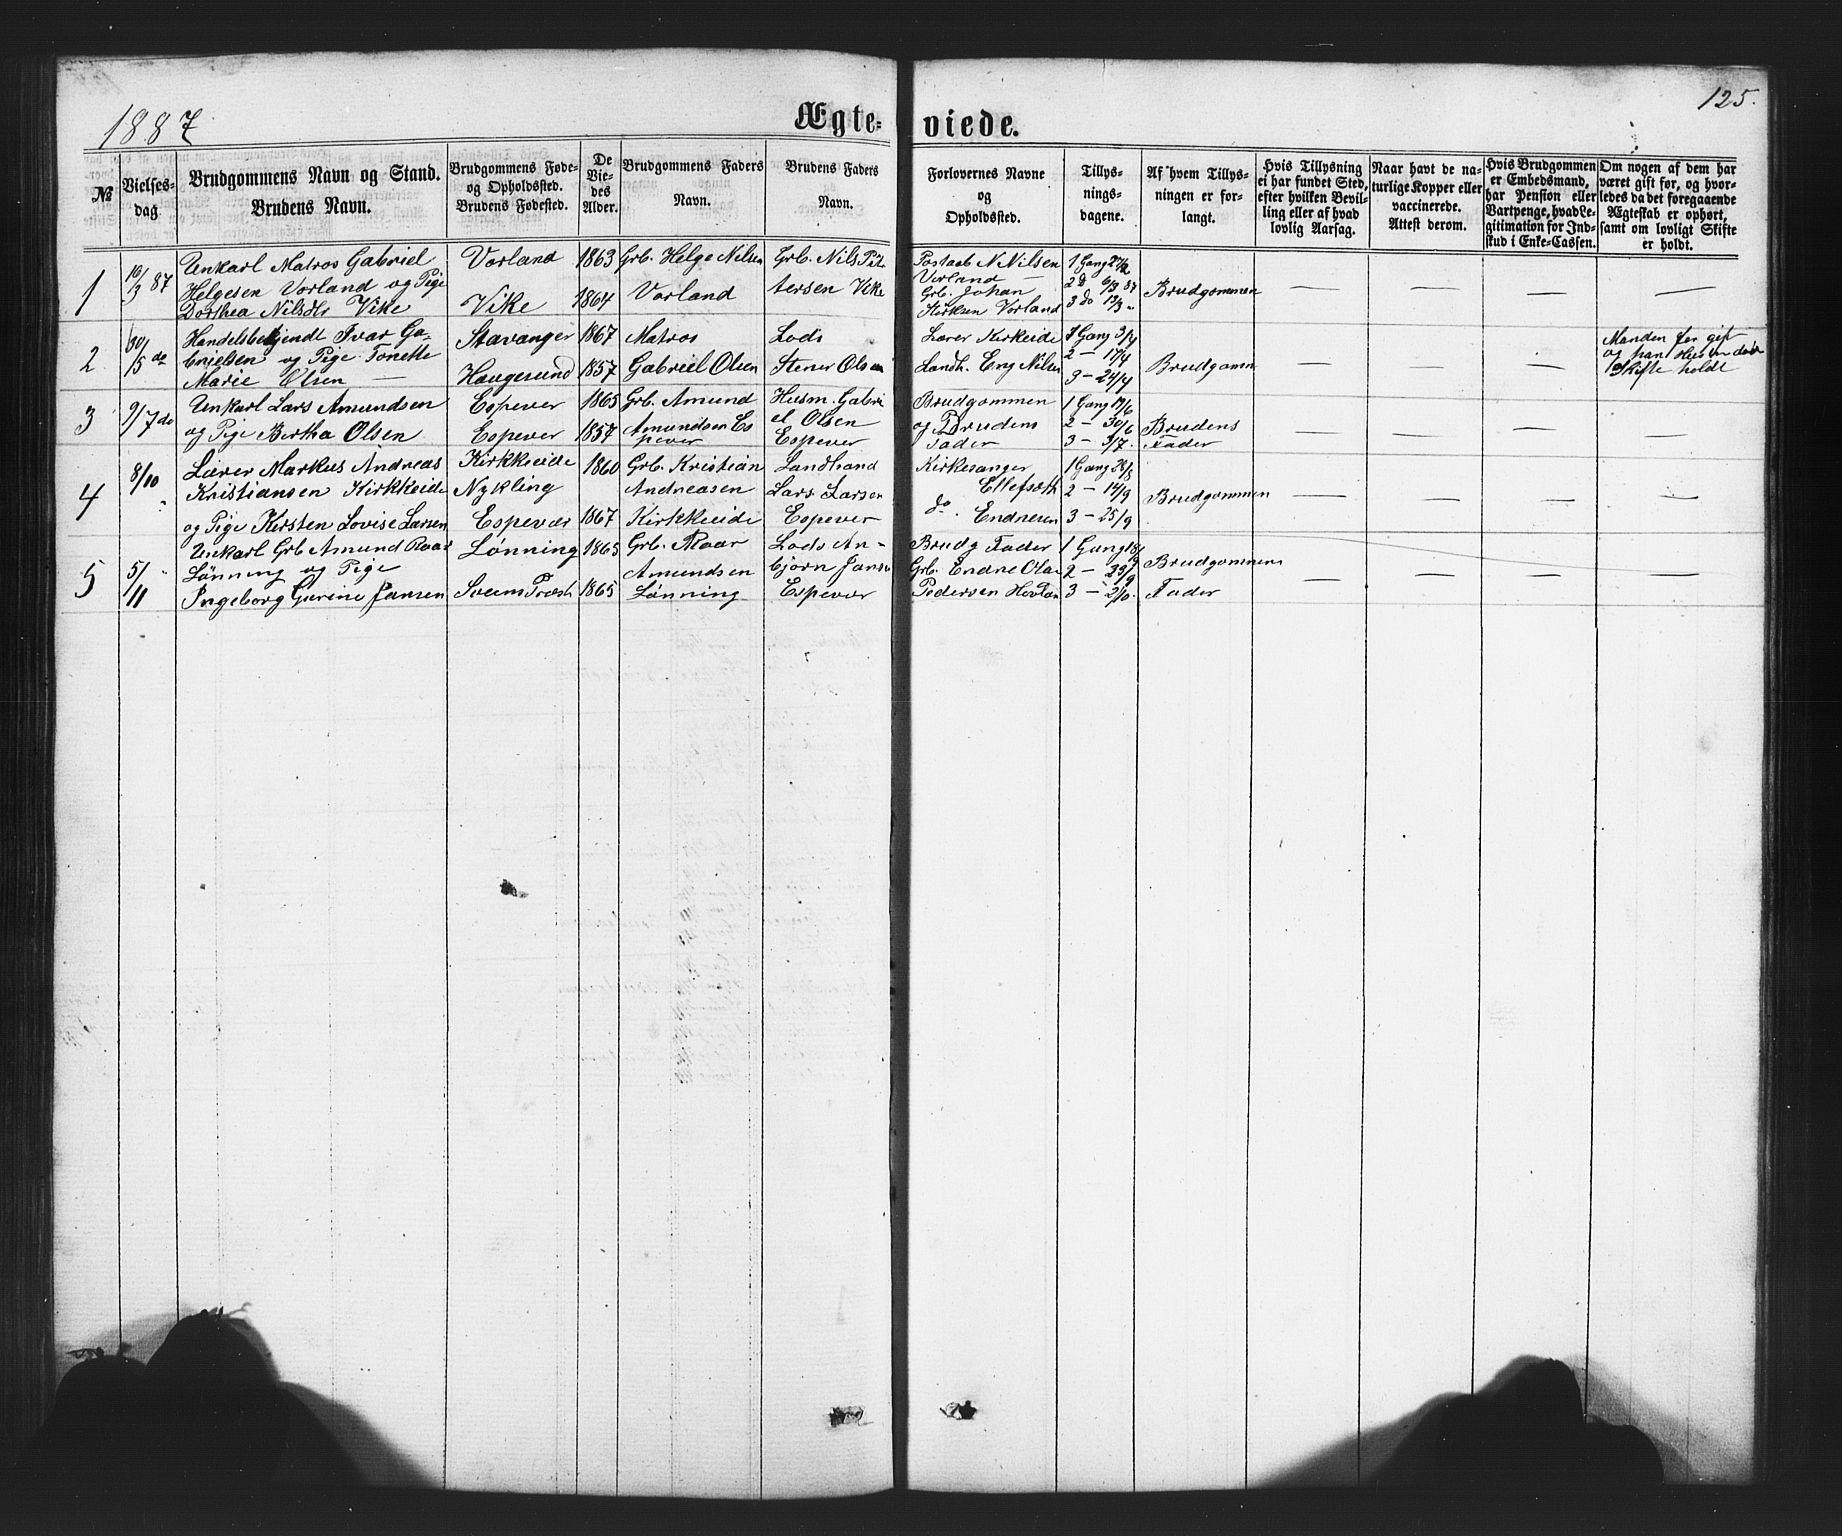 1887 Ægte-viede. 125.
№
Vielses-dag.
Brudgommens Navn og Stand.
Brudens Navn.
Brudgommens Føde-
og Opholdssted.
Brudens Fødested.
De
Vie-
des
Alder.
Brudgommens Faders
Navn.
Brudens Faders
Navn.
Forlovernes Navne
og
Opholdssted.
Tillys-
nings-
dagene.
Af hvem Tillys-
ningen er for-
langt.
Hvis Tillysning
ei har fundet Sted,
efter hvilken Bevil-
ling eller af hvad
lovlig Aarsag.
Naar havt de na-
turlige Kopper eller
vaccinerede.
Attest derom.
Hvis Brudgommen
er Embedsmand,
har Pension eller
Vartpenge, hvad Le-
gitimation for Ind-
skud i Enke-Cassen.
Om nogen af dem har
været gift før, og hvor-
ledes da det foregaaende
Ægteskab er ophørt,
samt om lovligt Skifte
er holdt.
1
10/3 87
Unkarl Matros Gabriel
Helgesen Vorland og Pige
Dorthea Nilsdtr Vike
Vorland
Vike
1863
1864
Grb. Helge Nilsen
Vorland
Grb. Nils Pet-
tersen Vike
N Nilsen
Vorland
Grb. Johan
Vorland
1 Gang 27/2
2 d 6/3 87
3 do 13/3 "
Brudgommen
— — — —
2
30/5 do
Handelsbetjendt Ivar Ga-
brielsen og Pige Tonette
Marie Olsen —
Stavanger
Haugesund
1867
1857
Matros
Gabriel Olsen
Lods
Stener Olsen
Lærer Kirkeide
Landh. Eng Nilsen
1 Gang 3/4
2 — 17/4
3 — 24/4
Brudgomn
— — —
Manden før gift
og hans Hustru død
Skifte holdt
3
9/7 do
Unkarl Lars Amundsen
og Pige Bertha Olsen
Espever
Espever
1865
1857
Grb. Amund
Amundsen Es
pever
Husm. Gabri
el Olsen
Espever
Brudgommen
og Brudens
Fader
1 Gang 19/6
2 — 30/6
3 — 3/7.
Brudens
Fader
— — — —
4
8/10 "
Lærer Markus Andreas
Kristiansen Kirkkeide
og Pige Kirsten Lovise Larsen
Kirkkeide
Nykling
Espevær
1860
1867
Grb. Kristian
Andreasen
Kirkkeide
Landhand
Lars Larsen
Espever
Kirkesanger
Ellefsæth
do. Endresen
1 Gang 28/8
2 — 14/9
3 — 25/9
Brudgommen
— — — —
5
5/11 "
Unkarl Grb Amund Roar
Lønning og Pige
Ingeborg Gurine Jansen
Lønning
1865
1865
Grb. Roar
Amundsen
Lønning
Lods An-
bjørn Jansen
Espevær
Brudg Fader
Grb. Endne Ola
Pedersen
1 Gang 18/9
2 — 23/9
3 — 2/10.
Brudgommens
Fader
— — — —